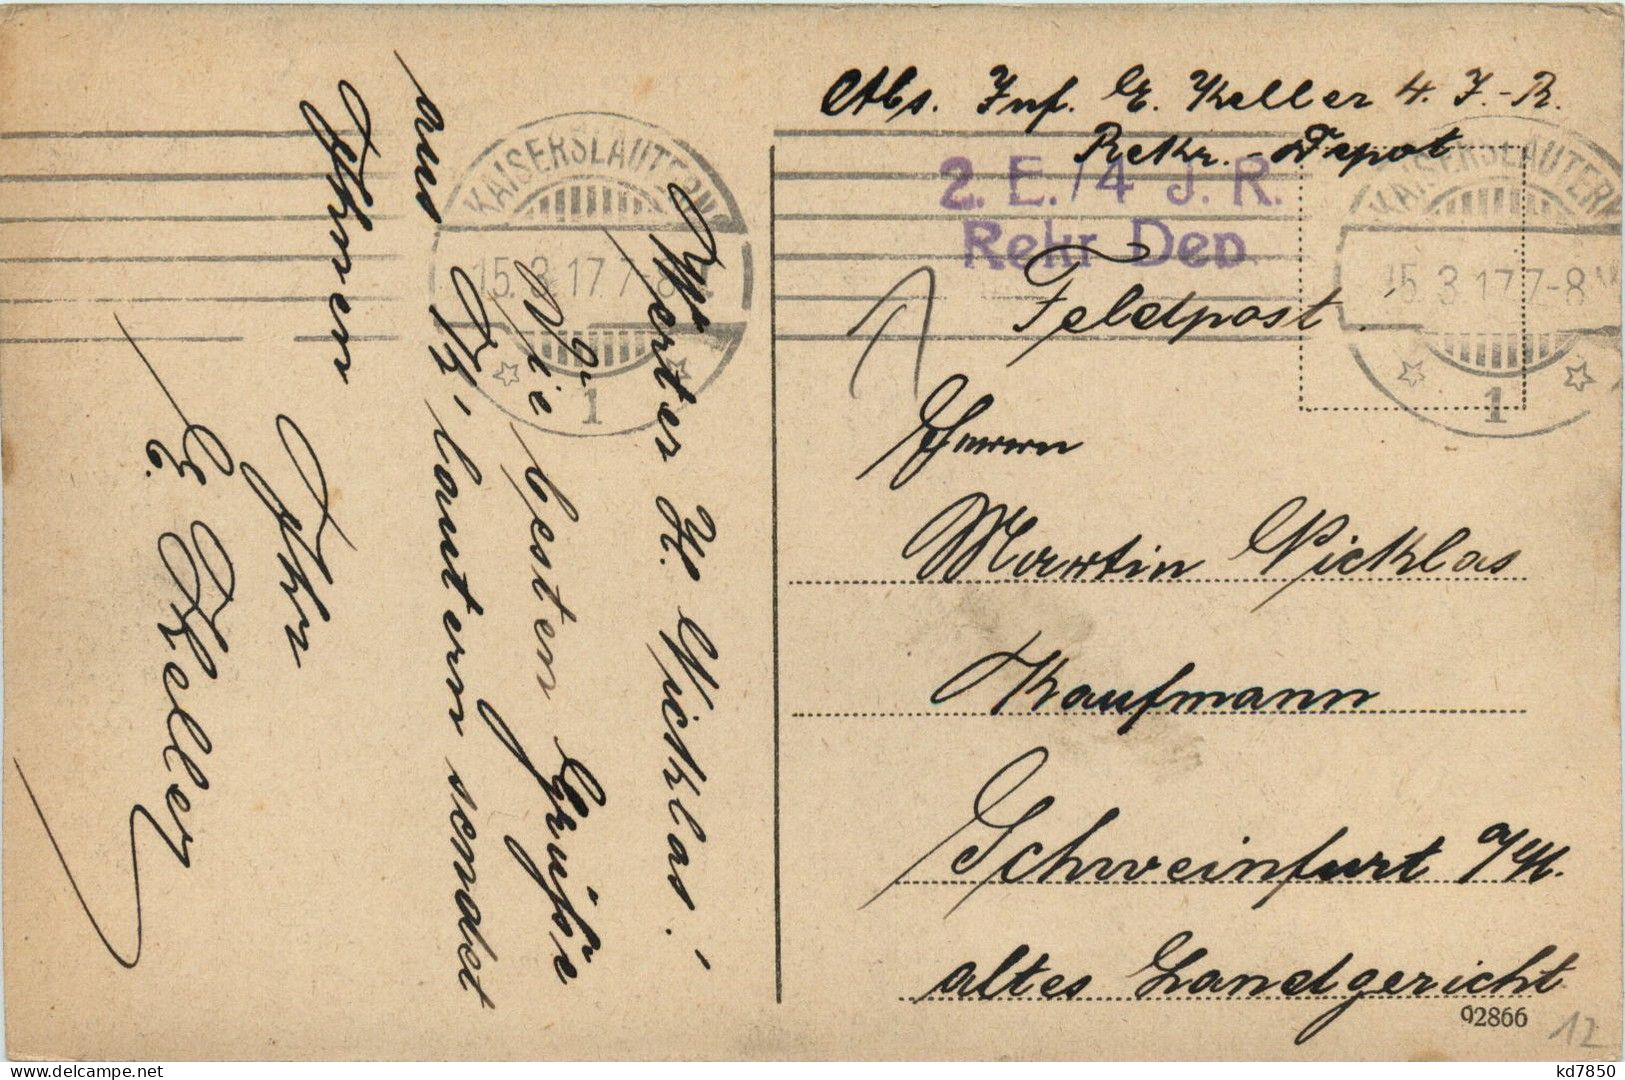 Abs. Inf. E. Keller 4. I.-R.
Rekr.-Depot
2. E./4 J. R.
Rekr Dep
Feldpost.
KAISERSLAUTERN
15.3.17.7-8
1
KAISERSLAUTERN
15.3.17.7-8 V
1
Herrn
Martin Nicklas
Kaufmann
Schweinfurt a/M.
altes Landgericht
92866
12
Werter H. Nicklas!
Die besten Grüße
aus K'lautern sendet
Ihnen
Ihr
E. Keller
kd7850